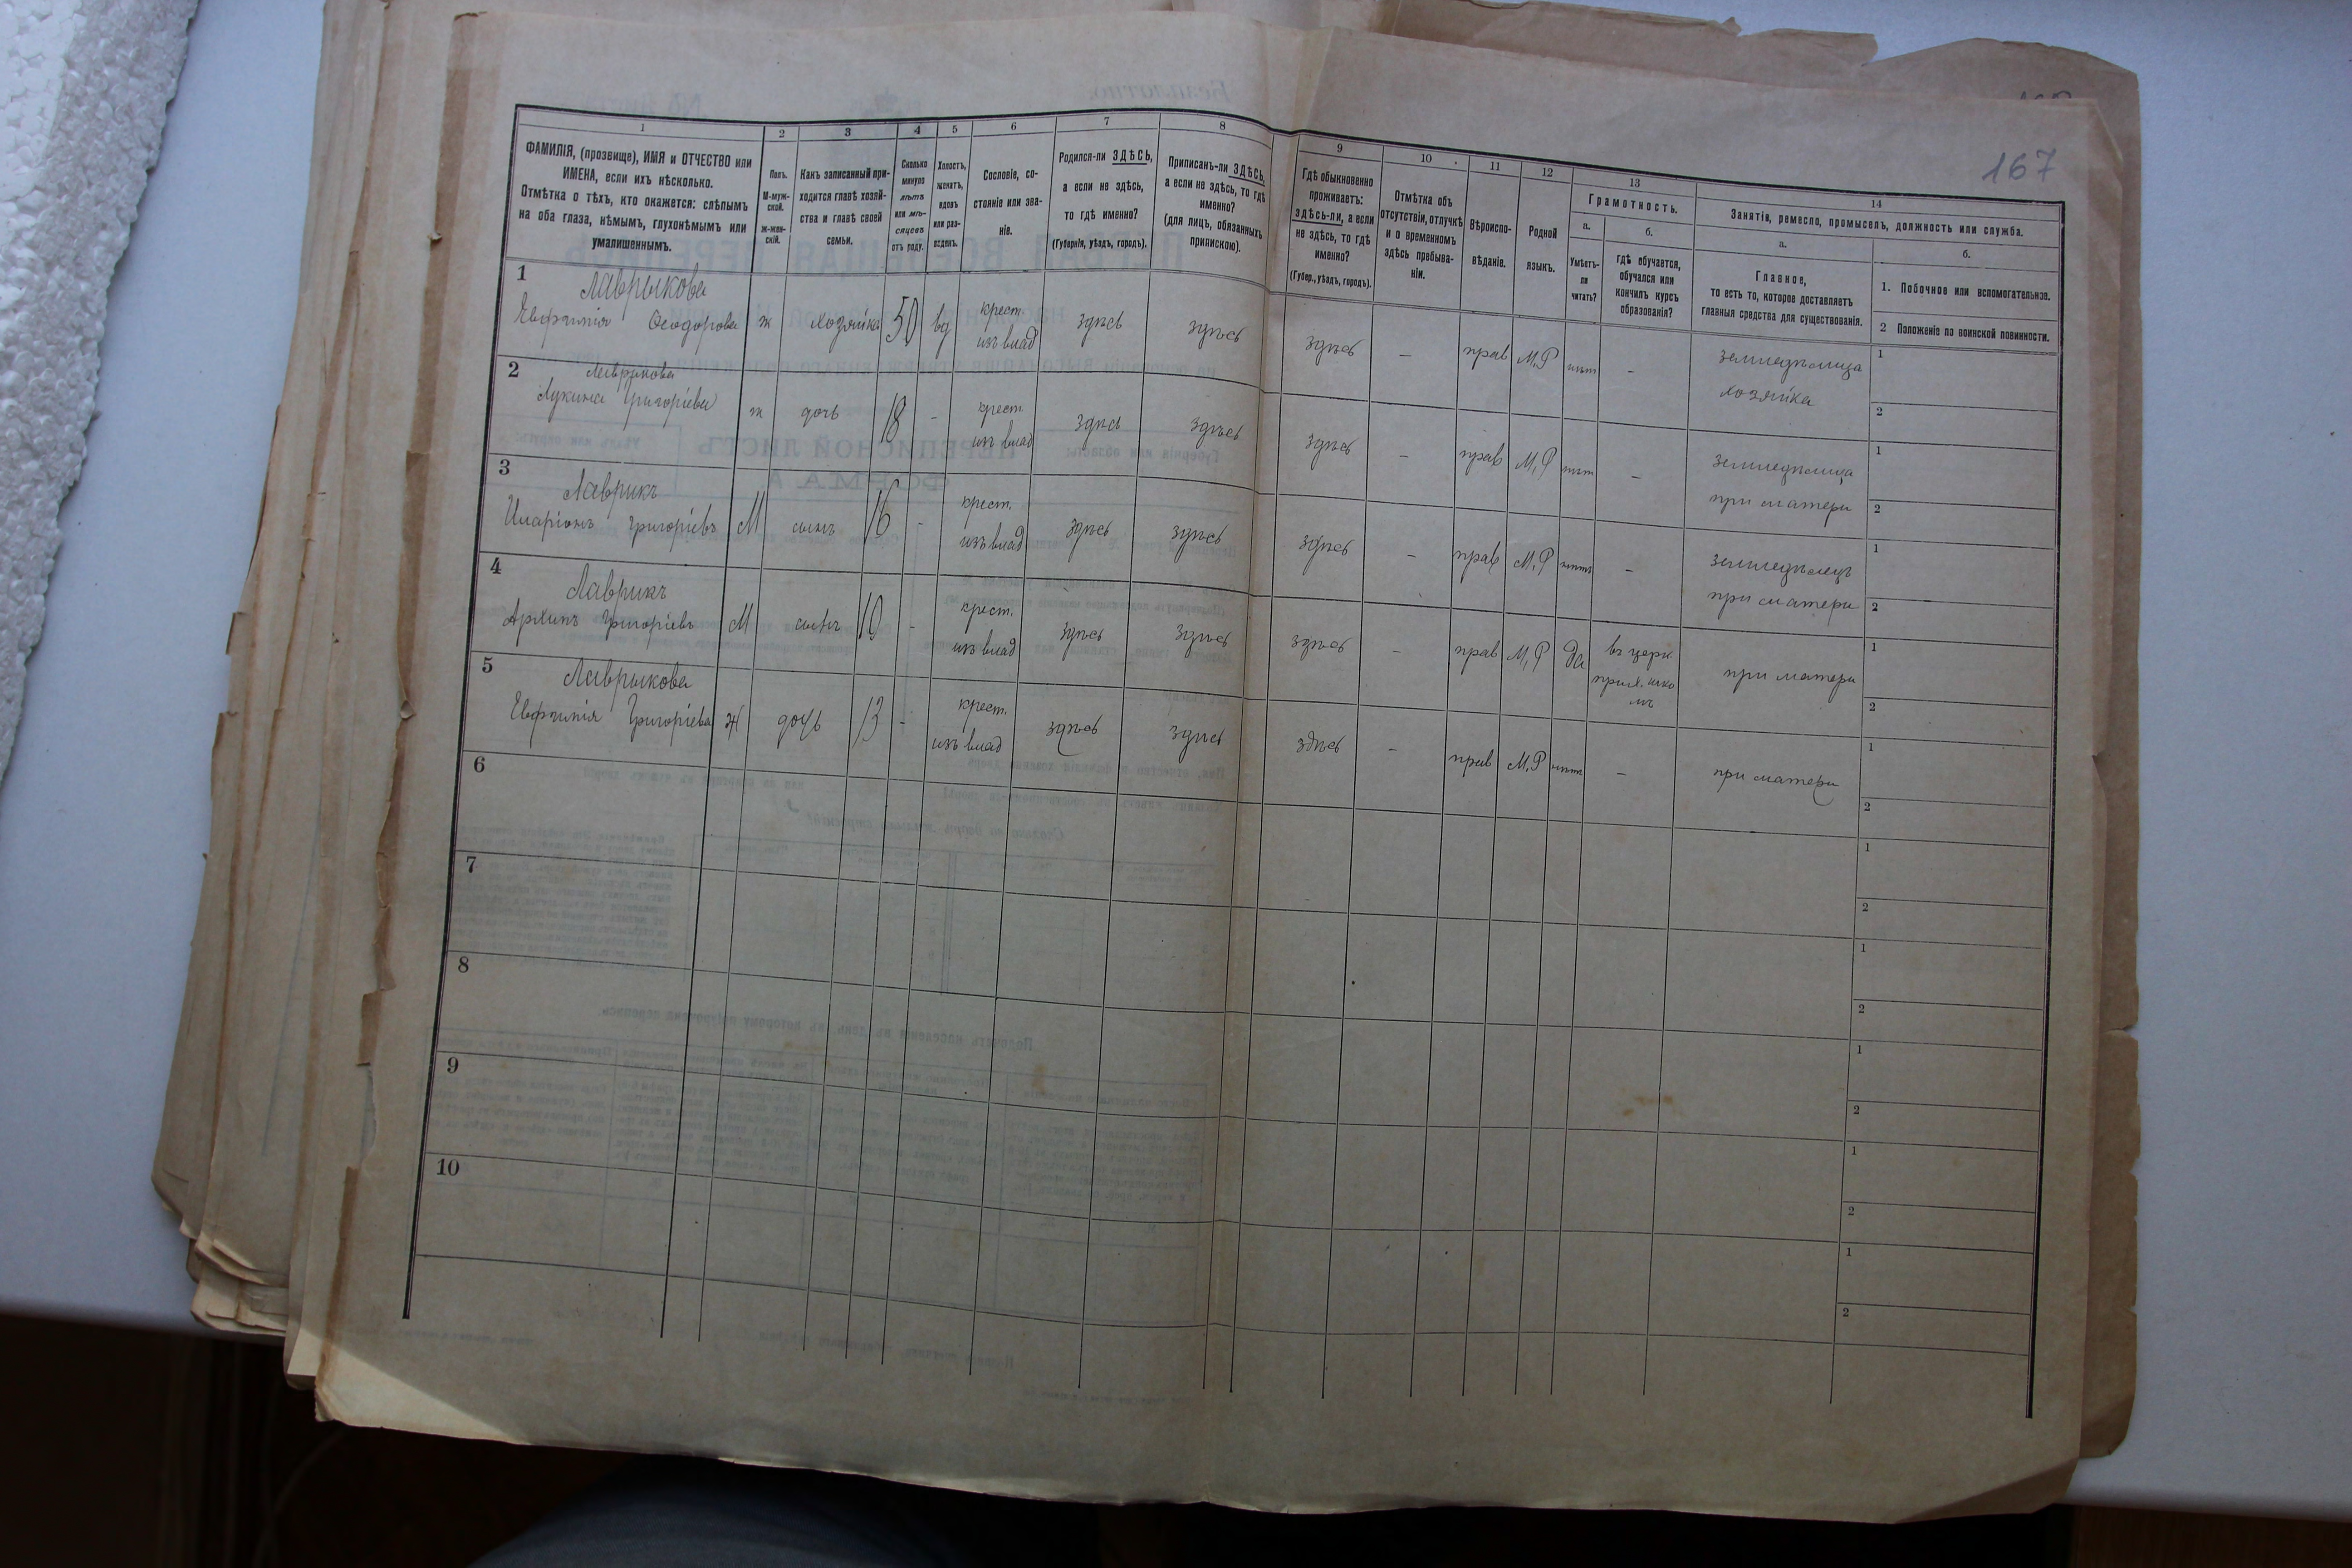 167
1 2 3 4 5 6 7 8 9 10 11 12 13 14
ФАМИЛІЯ, (прозвище), ИМЯ и ОТЧЕСТВО или
ИМЕНА, если ихъ нѣсколько.
Отмѣтка о тѣхъ, кто окажется: слѣпымъ
на оба глаза, нѣмымъ, глухонѣмымъ или
умалишеннымъ.
Полъ.
М-муж-
ской.
Ж-жен-
скій.
Какъ записанный при-
ходится главѣ хозяй-
ства и главѣ своей
семьи.
Сколько
минуло
лѣтъ
или мѣ-
сяцевъ
отъ роду.
Холостъ,
женатъ,
вдовъ
или раз-
веденъ.
Сословіе, со-
стояніе или зва-
ніе.
Родился-ли ЗДѢСЬ,
а если не здѣсь,
то гдѣ именно?
(Губернія, уѣздъ, городъ).
Приписанъ-ли ЗДѢСЬ,
а если не здѣсь, то гдѣ
именно?
(для лицъ, обязанныхъ
припискою).
Гдѣ обыкновенно
проживаетъ:
здѣсь-ли, а если
не здѣсь, то гдѣ
именно?
(Губер., уѣздъ, городъ).
Отмѣтка объ
отсутствіи, отлучкѣ
и о временномъ
здѣсь пребыва-
ніи.
Вѣроиспо-
вѣданіе.
Родной
языкъ.
Грамотность.
а.
Умѣетъ-
ли
читать?
б.
гдѣ обучается,
обучался или
кончилъ курсъ
образованія?
Занятіе, ремесло, промыселъ, должность или служба.
а.
Главное,
то есть то, которое доставляетъ
главныя средства для существованія.
б.
1. Побочное или вспомогательное.
2 Положеніе по воинской повинности.
1 Лаврыкова
Евфимія Ѳеодорова ж хозяйка 50 вд крест. здѣсь здѣсь здѣсь – прав М,Р нѣтъ – земледѣлица 1
изъ влад хозяйка 2
2 Лаврыкова
Лукина Григоріева ж дочь 18 - крест. здѣсь здѣсь здѣсь – прав М,Р нѣтъ – земледѣлица 1
изъ влад при матери 2
3 Лаврикъ
Иларіонъ Григоріевъ М сынъ 16 - крест. здѣсь здѣсь здѣсь – прав М,Р нѣтъ – земледѣлецъ 1
изъ влад при матери 2
4 Лаврикъ
Архипъ Григоріевъ М сынъ 10 - крест. здѣсь здѣсь здѣсь – прав М,Р да въ церк. при матери 1
изъ влад прих. шко 2
лѣ
5 Лаврыкова
Евфимія Григоріева Ж дочь 13 - крест. здѣсь здѣсь здѣсь – прав М,Р нѣтъ – при матери 1
изъ влад 2
6 1
2
7 1
2
8 1
2
9 1
2
10 1
2